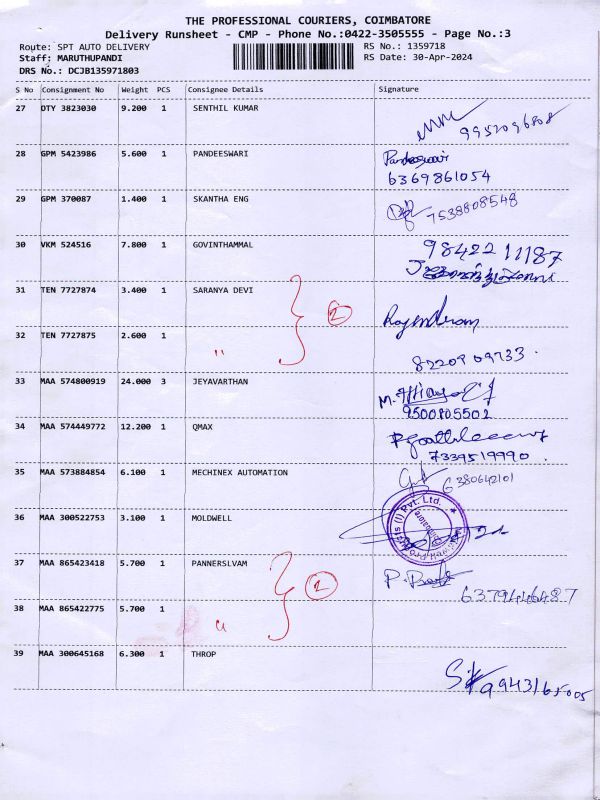 THE PROFESSIONAL COURIERS, COIMBATORE
Delivery Runsheet - CMP - Phone No.:0422-3505555 - Page No.:3
Route: SPT AUTO DELIVERY RS No.: 1359718
Staff: MARUTHUPANDI RS Date: 30-Apr-2024
DRS No.: DCJB135971803
S No Consignment No Weight PCS Consignee Details Signature
27 DTY 3823030 9.200 1 SENTHIL KUMAR
28 GPM 5423986 5.600 1 PANDEESWARI Pandeeswari
6369861054
29 GPM 370087 1.400 1 SKANTHA ENG 7538808548
30 VKM 524516 7.800 1 GOVINTHAMMAL 9842211187
31 TEN 7727874 3.400 1 SARANYA DEVI 2
32 TEN 7727875 2.600 1 "
8220909733.
33 MAA 574800919 24.000 3 JEYAVARTHAN
9500805502
34 MAA 574449772 12.200 1 QMAX
7339519990.
35 MAA 573884854 6.100 1 MECHINEX AUTOMATION 6380642101
36 MAA 300522753 3.100 1 MOLDWELL
(I) Pvt. Ltd.
37 MAA 865423418 5.700 1 PANNERSLVAM 2
6379446487
38 MAA 865422775 5.700 1 "
39 MAA 300645168 6.300 1 THROP
9943165005